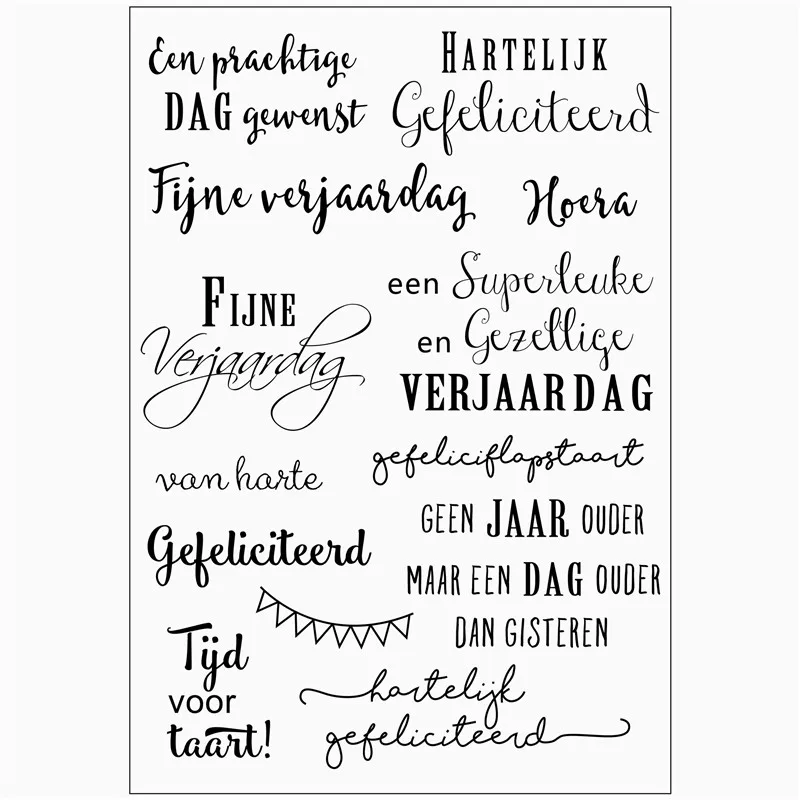 Een prachtige
DAG gewenst
HARTELIJK
Gefeliciteerd
Fijne verjaardag
Hoera
FIJNE
Verjaardag
een Superleuke
en Gezellige
VERJAARDAG
van harte
gefeliciflapstaart
Gefeliciteerd
GEEN JAAR OUDER
MAAR EEN DAG OUDER
DAN GISTEREN
Tijd
voor
taart!
hartelijk
gefeliciteerd